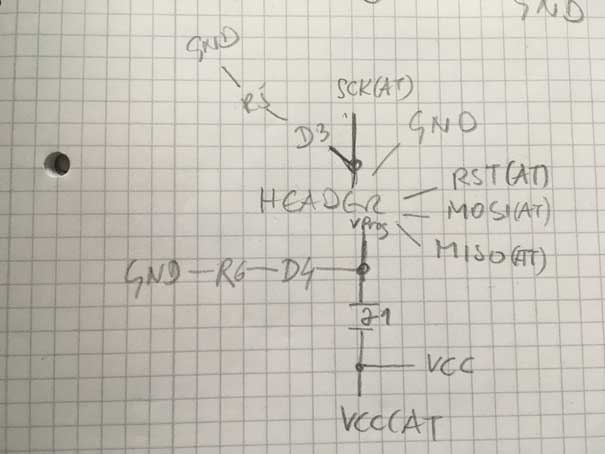 GND
GND
SCK(AT)
R5
D3
GND
HEADER
RST(AT)
MOSI(AT)
VProg
MISO(AT)
GND—R6—D4
J1
VCC
VCC(AT